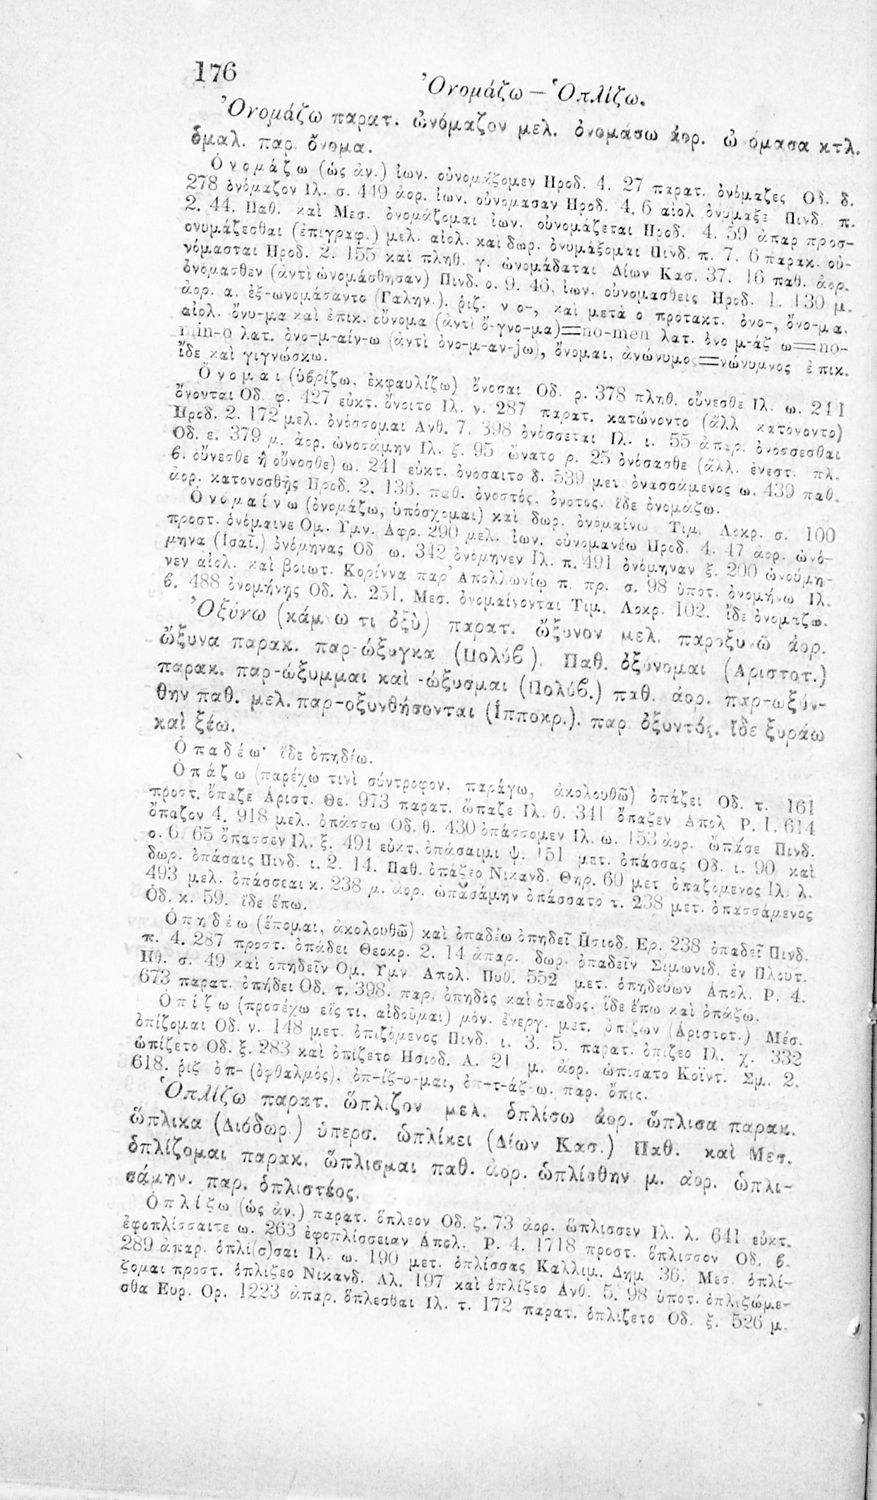 176
Ὀνομάζω — Ὁπλίζω.
Ὀνομάζω παρατ. ὠνόμαζον μελ. ὀνομάσω ἀορ. ὠ όμασα κτλ.
ὁμαλ. παρ. ὄνομα.
Ὀνομάζω (ὡς ἀν.) ἰων. οὐνομάζομεν Ηροδ. 4. 27 παρατ. ὀνόμαζες Οδ. δ.
278 ὀνόμαζον Ιλ. σ. 449 ἀορ. ἰων. οὐνόμασαν Ηροδ. 4. 6 αἰολ ὀνύμαξε Πινδ. π.
2. 44. Παθ. καὶ Μεσ. ὀνομάζομαι ἰων. οὐνομάζεται Ηροδ. 4. 59 ἀπαρ προσ-
ονυμάζεσθαι (ἐπιγραφ.) μελ. αἰολ. καὶ δωρ. ὀνυμάξομαι Πινδ. π. 7. 6 παρακ. οὐ-
νόμασται Ηροδ. 2. 155 καὶ πληθ. γ. ὠνομάδαται Δίων Κασ. 37. 16 παθ. ἀορ.
ὀνόμασθεν (ἀντὶ ὠνομάσθησαν) Πινδ. ο. 9. 46. ἰων. οὐνομασθεὶς Ηροδ. 1. 130 μ.
ἀορ. α. ἐξ-ωνομάσαντο (Γαλην.). ῥιζ. ν ο-, καὶ μετὰ ο προτακτ. ὀνο-, ὄνο-μα,
αἰολ. ὄνυ-μα καὶ ἐπικ. οὔνομα (ἀντὶ ὄ-γνο-μα)=no-men λατ. ὀνο μ-άζ ω=no-
min-o λατ. ὀνο-μ-αίν-ω (ἀντὶ ὀνο-μ-αν-jω), ὄνομαι, ἀνώνυμος=νώνυμνος ἐπικ.
ἴδε καὶ γιγνώσκω.
Ὄνομαι (ὑβρίζω, ἐκφαυλίζω) ὄνοσαι Οδ. ρ. 378 πληθ. οὔνεσθε Ιλ. ω. 241
ὄνονται Οδ. φ. 427 εὐκτ. ὄνοιτο Ιλ. ν. 287 παρατ. κατώνοντο (ἄλλ κατονοντο)
Ηροδ. 2. 172 μελ. ὀνόσσομαι Ανθ. 7. 398 ὀνόσσεται Ιλ. ι. 55 ἀπαρ. ὀνόσσεσθαι
Οδ. ε. 379 μ. ἀορ. ὠνοσάμην Ιλ. ξ. 95 ὤνατο ρ. 25 ὀνόσασθε (ἄλλ. ἐνεστ. πλ.
β. οὔνεσθε ἢ οὔνοσθε) ω. 241 εὐκτ. ὀνόσαιτο δ. 539 μετ. ὀνασσάμενος ω. 439 παθ.
ἀορ. κατονοσθῇς Ηροδ. 2. 136. παθ. ὀνοστός, ὀνοτος. ἴδε ὀνομάζω.
Ὀνομαίνω (ὀνομάζω, ὑπόσχομαι) καὶ δωρ. ὀνομαίνω Τιμ. Λοκρ. σ. 100
προστ. ὀνόμαινε Ομ. Υμν. Αφρ. 290 μελ. ἰων. οὐνομανέω Ηροδ. 4. 47 ἀορ. ὠνό-
μηνα (Ισαῖ.) ὀνόμηνας Οδ ω. 342 ὀνόμηνεν Ιλ. π. 491 ὀνόμηναν ξ. 200 ὠνούμη-
νεν αἰολ. καὶ βοιωτ. Κορίννα παρ' Ἀπολλωνίῳ π. πρ. σ. 98 ὑποτ. ὀνομήνω Ιλ.
β. 488 ὀνομήνῃς Οδ. λ. 251. Μεσ. ὀνομαίνονται Τιμ. Λοκρ. 102. ἴδε ὀνομάζω.
Ὀξύνω (κάμνω τι ὀξὺ) παρατ. ὤξυνον μελ. παροξυνῶ ἀορ.
ὤξυνα παρακ. παρ-ώξυγκα (Πολύβ). Παθ. ὀξύνομαι (Αριστοτ.)
παρακ. παρ-ώξυμμαι καὶ -ώξυσμαι (Πολύβ.) παθ. ἀορ. παρ-ωξύν-
θην παθ. μελ. παρ-οξυνθήσονται (Ἱπποκρ.). παρ. ὀξυντός. ἴδε ξυράω
καὶ ξέω.
Ὀπαδέω· ἴδε ὀπηδέω.
Ὀπάζω (παρέχω τινὶ σύντροφον, παράγω, ἀκολουθῶ) ὀπάζει Οδ. τ. 161
προστ. ὄπαζε Αριστ. Θε. 973 παρατ. ὤπαζε Ιλ. θ. 341 ὄπαζεν Απολ Ρ. 1. 614
ὄπαζον 4. 918 μελ. ὀπάσσω Οδ. θ. 430 ὀπάσσομεν Ιλ. ω. 153 ἀορ. ὤπασε Πινδ.
ο. 6. 65 ὄπασσεν Ιλ. ξ. 491 εὐκτ. ὀπάσαιμι ψ. 151 μετ. ὀπάσσας Οδ. ι. 90 καὶ
δωρ. ὀπάσαις Πινδ. ι. 2. 14. Παθ. ὀπάζεο Νικανδ. Θηρ. 60 μετ ὀπαζόμενος Ιλ. λ.
493 μελ. ὀπάσσεαι κ. 238 μ. ἀορ. ὠπασάμην ὀπάσσατο τ. 238 μετ. ὀπασσάμενος
Οδ. κ. 59. ἴδε ἕπω.
Ὀπηδέω (ἕπομαι, ἀκολουθῶ) καὶ ὀπαδέω ὀπηδεῖ Ησιοδ. Ερ. 238 ὀπαδεῖ Πινδ.
π. 4. 287 προστ. ὀπάδει Θεοκρ. 2. 14 ἀπαρ. δωρ. ὀπαδεῖν Σιμωνιδ. ἐν Πλουτ.
Ηθ. σ. 49 καὶ ὀπηδεῖν Ομ. Υμν Απολ. Πυθ. 552 μετ. ὀπηδεύων Απολ. Ρ. 4.
673 παρατ. ὀπήδει Οδ. τ. 398. παρ. ὀπηδὸς καὶ ὀπαδος. ἴδε ἕπω καὶ ὀπάζω.
Ὀπίζω (προσέχω εἴς τι, αἰδοῦμαι) μόν. ἐνεργ. μετ. ὀπίζων (Αριστοτ.) Μέσ.
ὀπίζομαι Οδ. ν. 148 μετ. ὀπιζόμενος Πινδ. ι. 3. 5. παρατ. ὀπίζεο Ιλ. χ. 332
ὠπίζετο Οδ. ξ. 283 καὶ ὀπίζετο Ησιοδ. Α. 21 μ. ἀορ. ὠπίσατο Κοϊντ. Σμ. 2.
618. ῥιζ ὀπ- (ὀφθαλμός), ὀπ-ίζ-ο-μαι, ὀπ-τ-άζ-ω. παρ. ὄπις.
Ὁπλίζω παρατ. ὥπλιζον μελ. ὁπλίσω ἀορ. ὥπλισα παρακ.
ὥπλικα (Διόδωρ.) ὑπερσ. ὡπλίκει (Δίων Κασ.) Παθ. καὶ Μεσ.
ὁπλίζομαι παρακ. ὥπλισμαι παθ. ἀορ. ὡπλίσθην μ. ἀορ. ὡπλι-
σάμην. παρ. ὁπλιστέος.
Ὁπλίζω (ὡς ἀν.) παρατ. ὅπλεον Οδ. ζ. 73 ἀορ. ὥπλισσεν Ιλ. λ. 641 εὐκτ.
ἐφοπλίσσαιτε ω. 263 ἐφοπλίσσειαν Απολ. Ρ. 4. 1718 προστ. ὅπλισσον Οδ. β.
289 ἀπαρ. ὁπλί(σ)σαι Ιλ. ω. 190 μετ. ὁπλίσσας Καλλιμ. Δημ 36. Μεσ ὁπλί-
ζομαι προστ. ὁπλίζεο Νικανδ. Αλ. 197 καὶ ὁπλίζεο Ανθ. 5. 98 ὑποτ. ὁπλιζώμε-
σθα Ευρ. Ορ. 1223 ἀπαρ. ὅπλεσθαι Ιλ. τ. 172 παρατ. ὁπλίζετο Οδ. ξ. 526 μ.